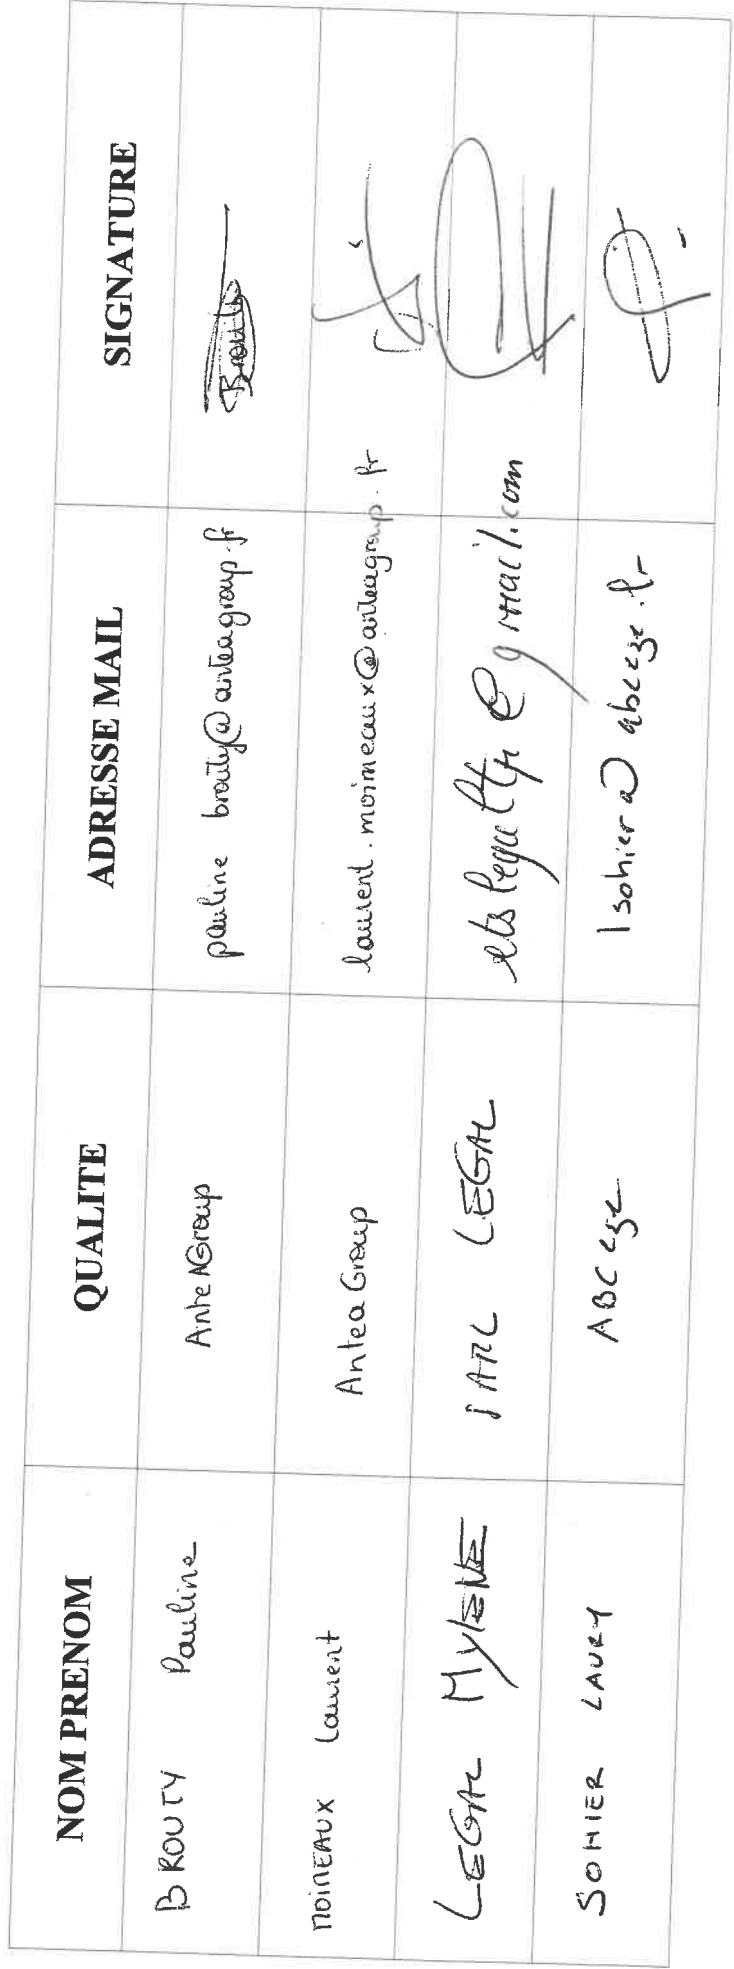 NOM PRENOM QUALITE ADRESSE MAIL SIGNATURE
BROUTY Pauline AnteAGroup pauline brouty@anteagroup.fr Brouty
MOINEAUX Laurent Antea Group laurent.moineaux@anteagroup.fr
LEGAL MYLENE SARL LEGAL @gmail.com
SOHIER LAURY ABC ege lsohier@abcege.fr